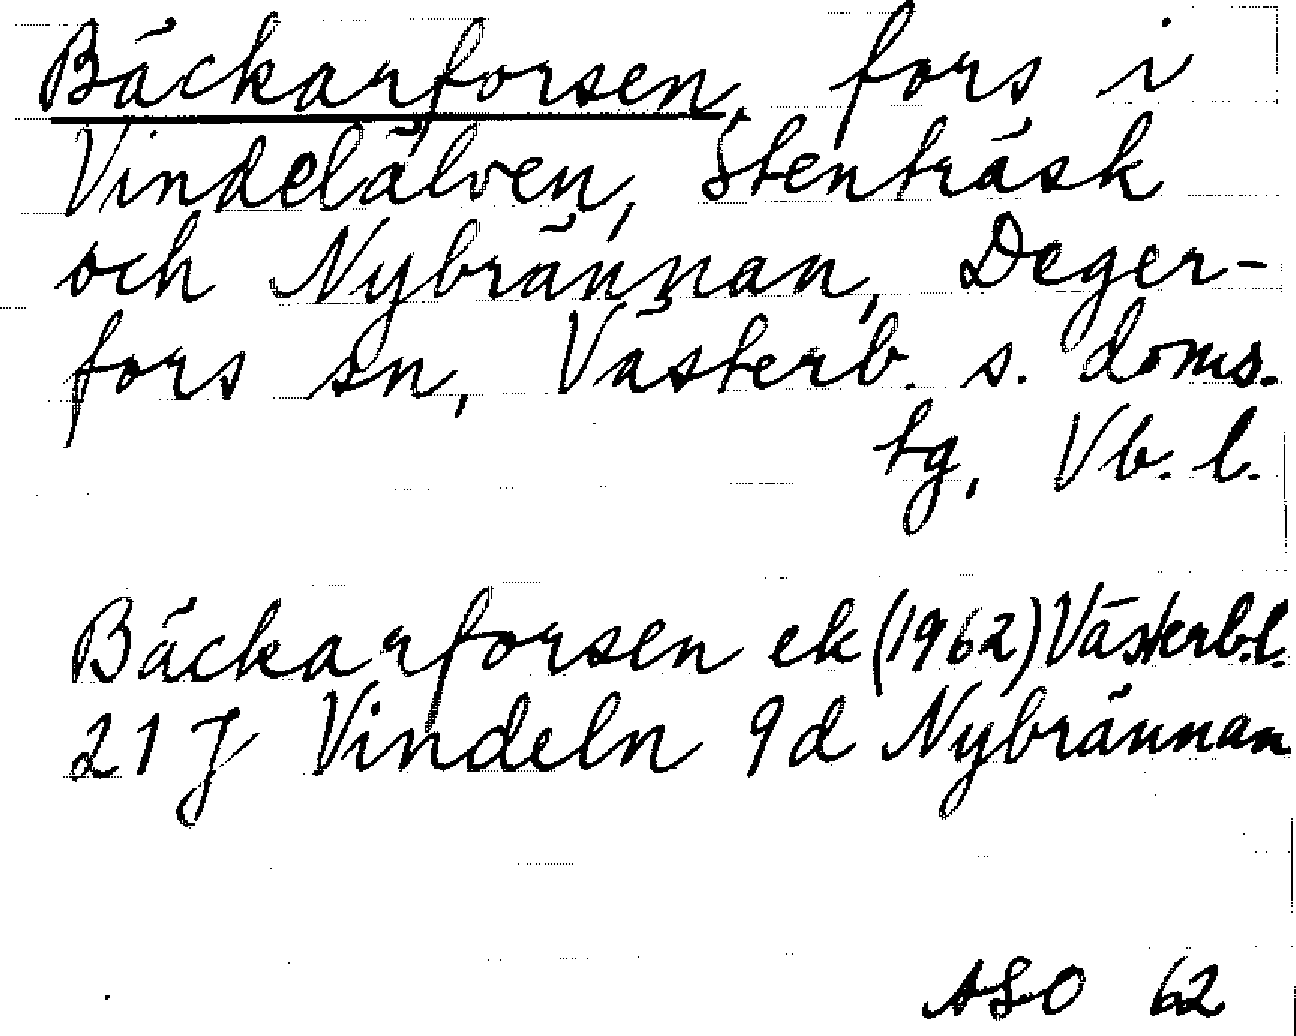 Bäckarforsen, fors i
Vindelälven, Stenträsk
och Nybrännan, Deger-
fors sn, Västerb. s. doms.
tg, Vb. l.
Bäckarforsen ek (1962) Västerb.l.
21 J Vindeln 9d Nybrännan
ASO 62